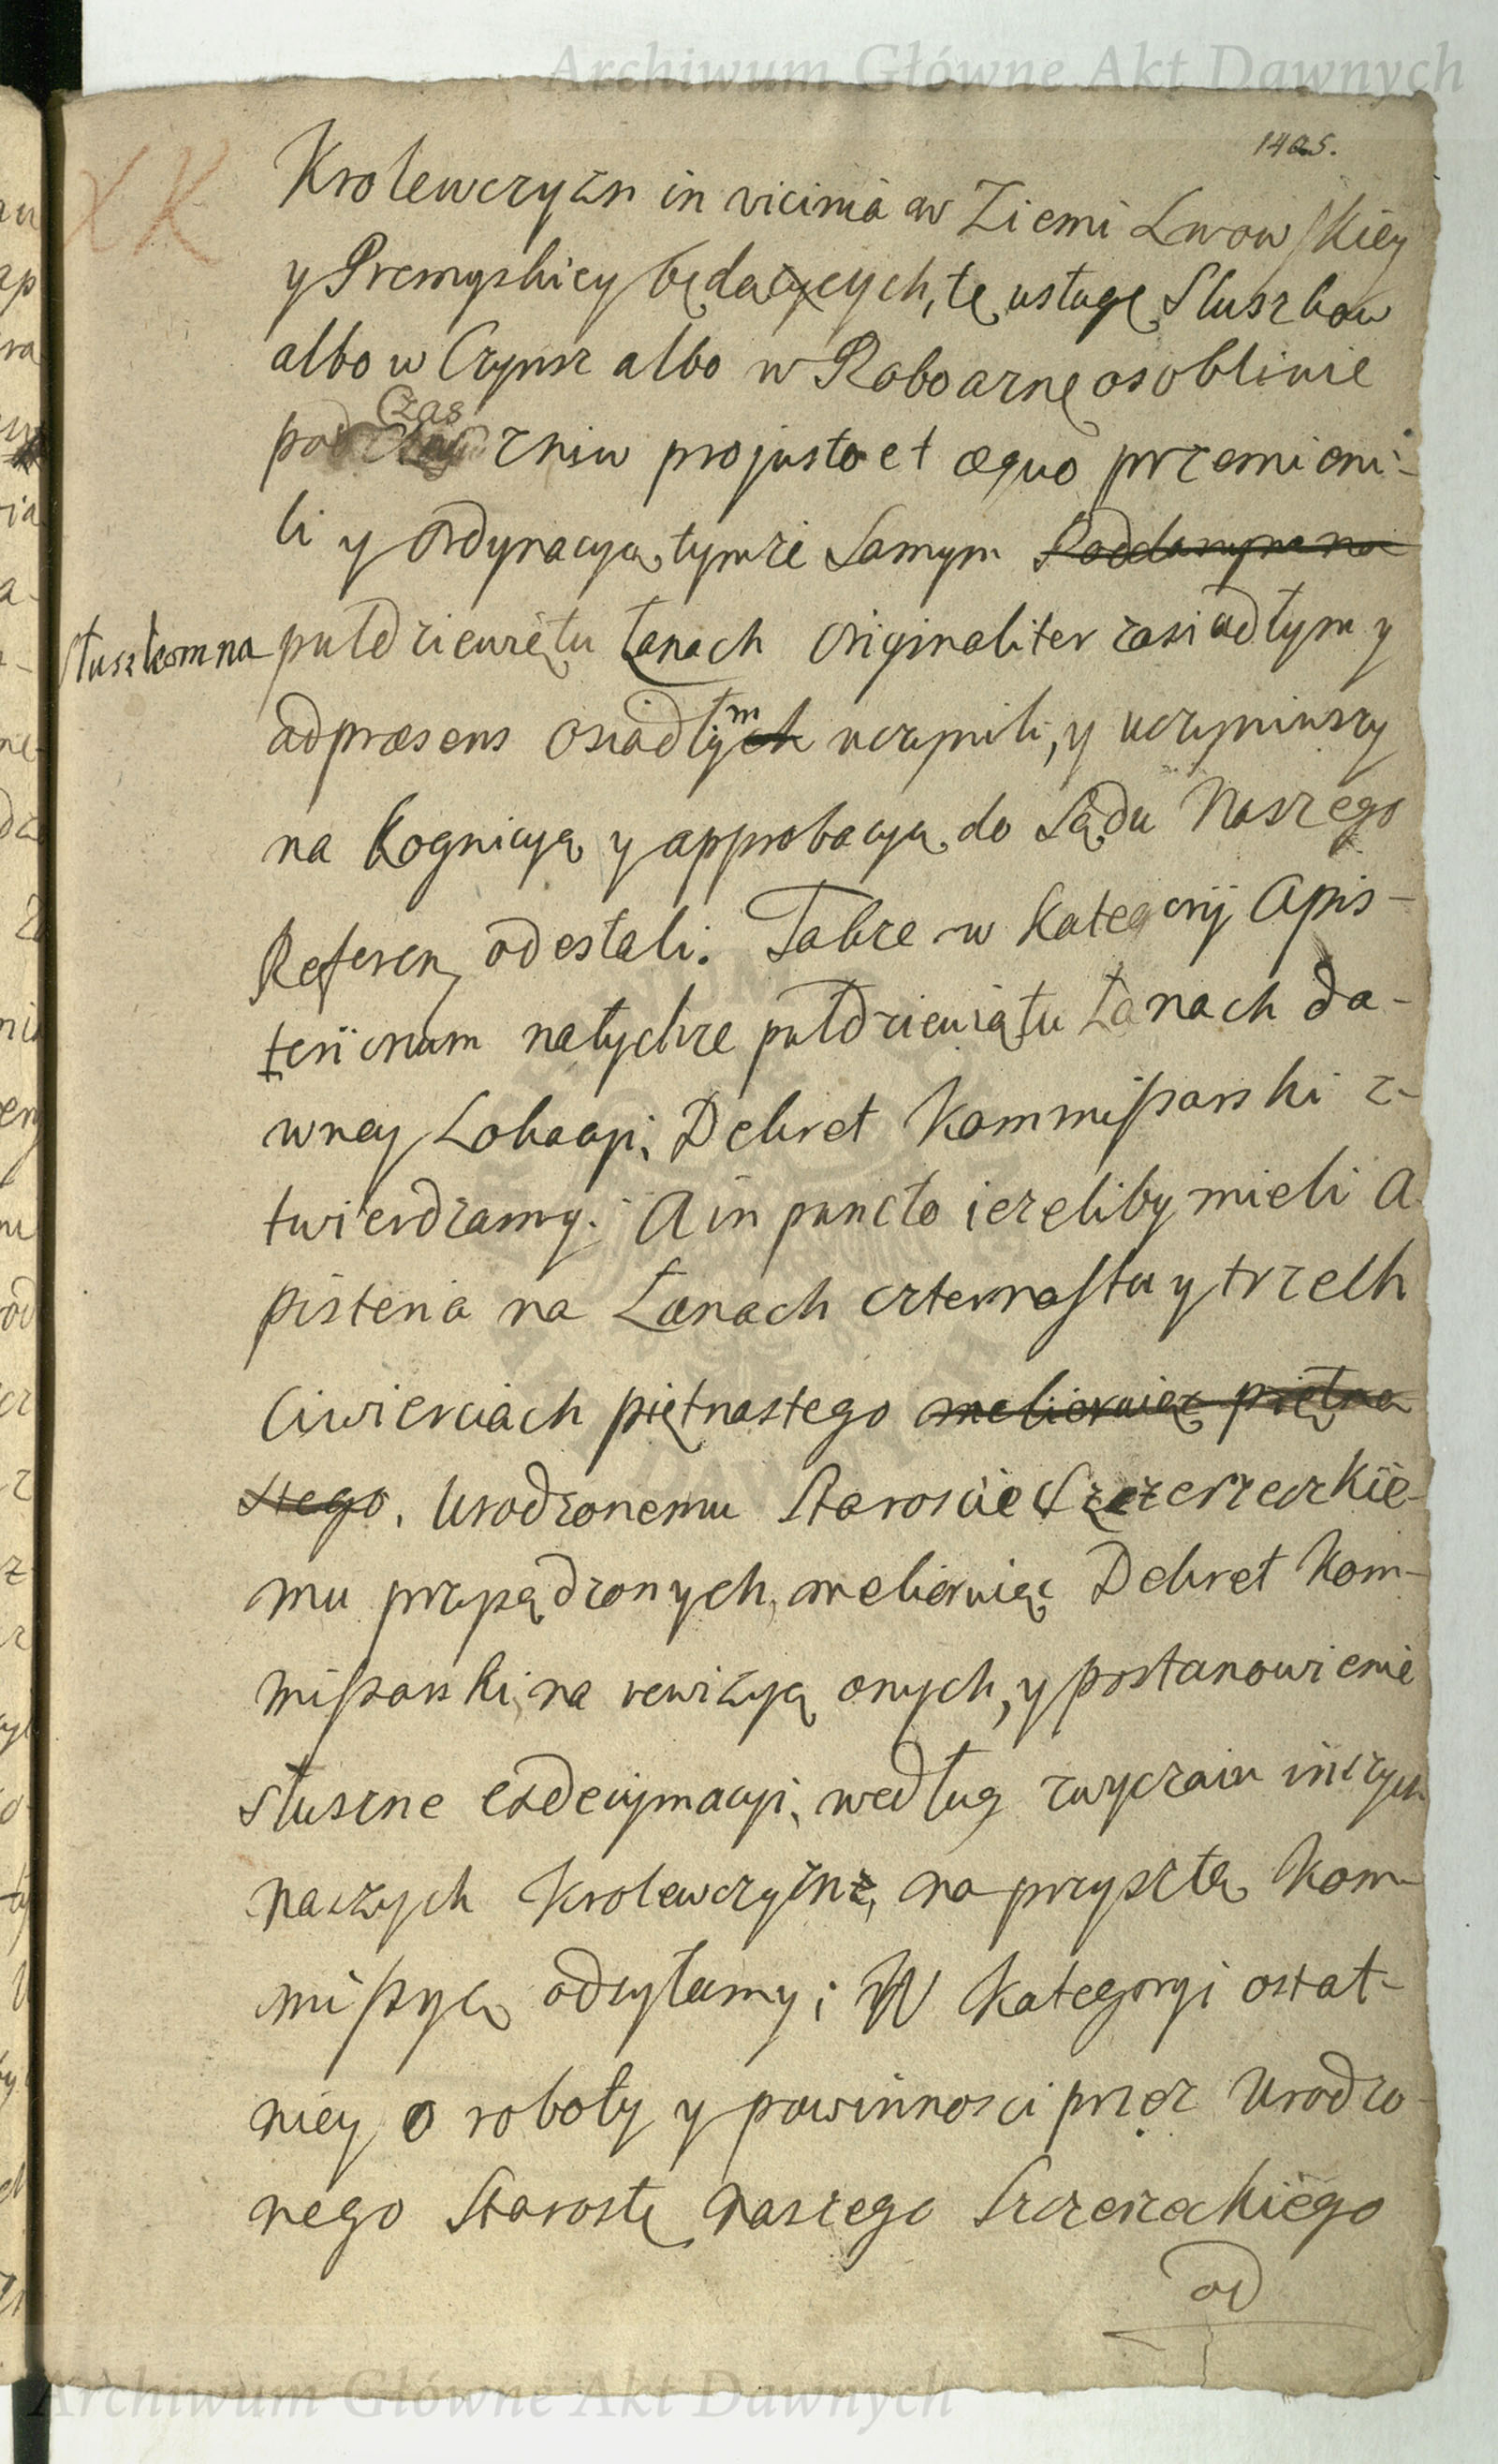 Archiwum Główne Akt Dawnych
1405.
XK
Krolewczyzn in vicinia w Ziemi Lwowskiey
y Premyskiey będących, tę usługę Sluszkow
albo w Czynsz albo w Roboarnę osobliwie
pod Czas zniw pro justo et æquo przemieni-
li y Ordynacyą tymże Samym Poddanym na
Słuszkom na pułdziewiętu Łanach Originaliter zasiadłym y
ad præsens Osiadłym uczynili, y uczyniwszy
na Kognicyą y approbacyą do Sądu Naszego
Referen, odesłali. Takze w Kategorij Apis-
teriorum na tychze pułdziewiątu Łanach da-
wney Lokacyi, Dekret Kommissarski z-
twierdzamy. A in puncto iezeliby mieli A
pisteria na Łanach czternastu y trzech
Ciwierciach piętnastego meliorując piętna
stego. Urodzonemu Staroscie Szczerzeckie-
mu przysądzonych, meliorując Dekret Kom-
missarski, na rewizyą onych, y postanowienie
słuszne exdecymacyi, według zwyczaiu inszych
naszych Krolewczyzn, na przyszłą Kom-
missyą odsyłamy; W Kategoryi ostat-
niey o roboty y powinnosci przez Urodzo-
nego Starostę naszego Szczerzeckiego
od
Archiwum Główne Akt Dawnych